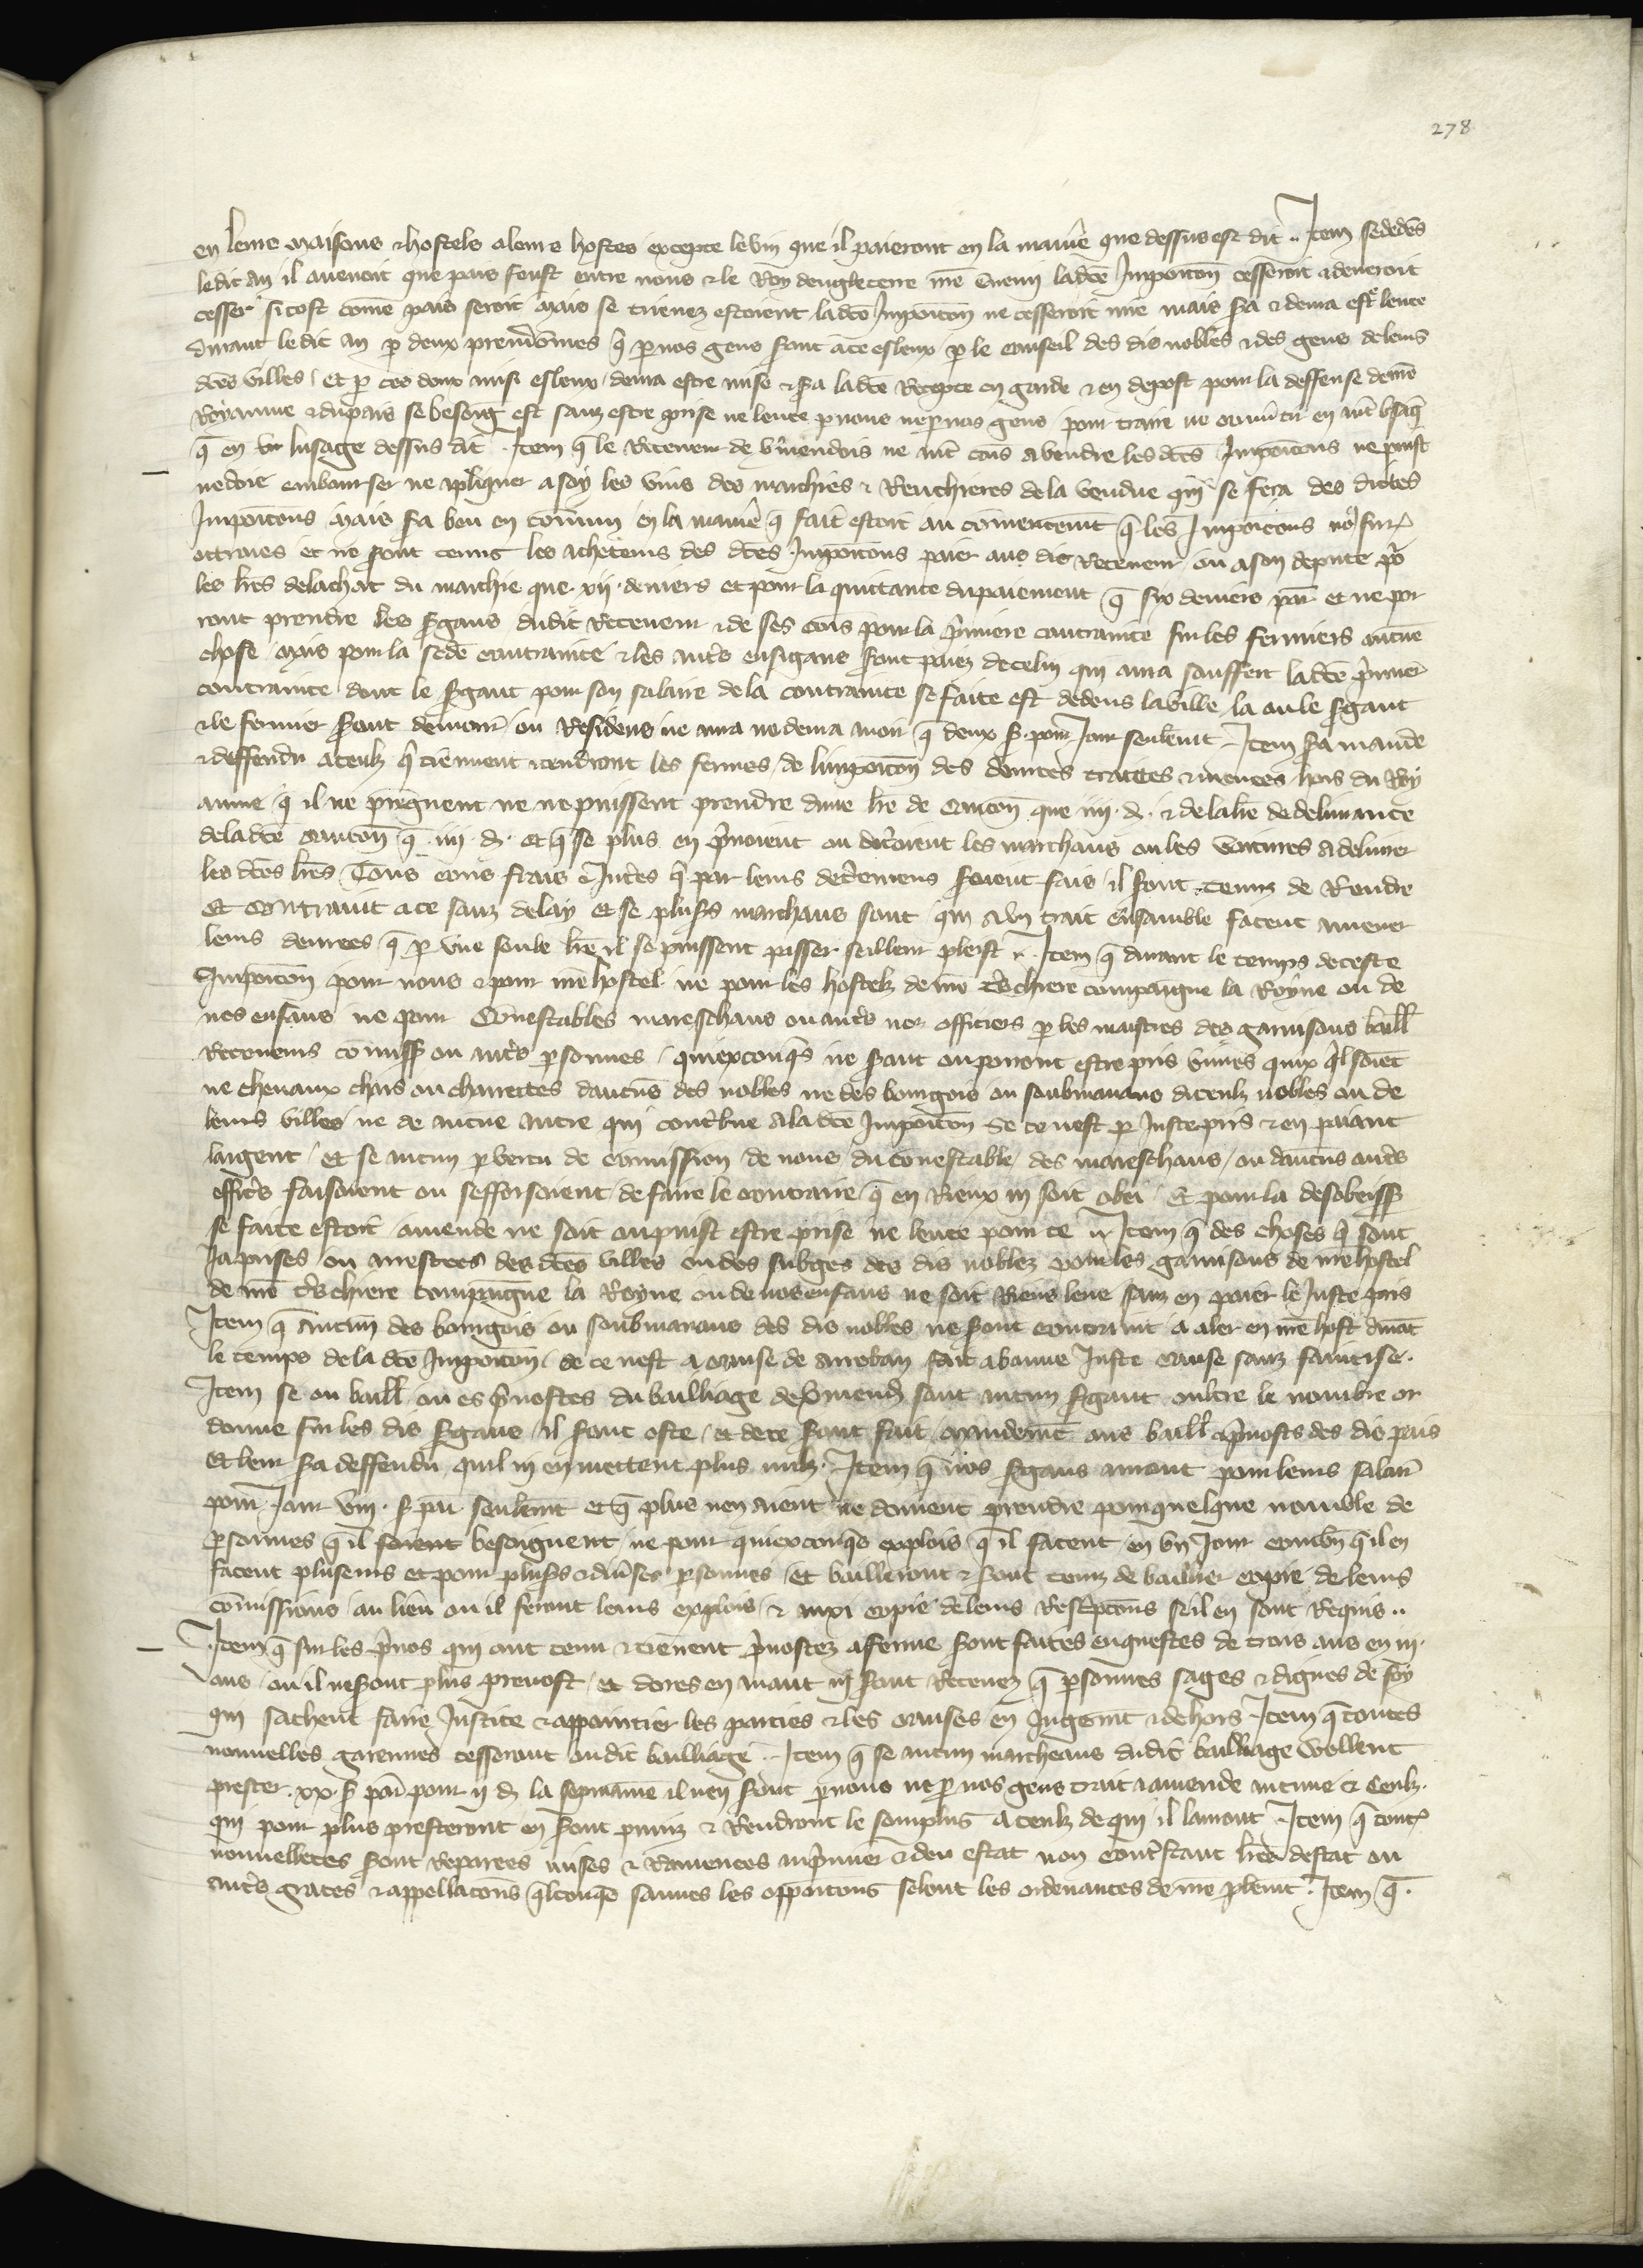 278
en leurs maisons & hostels a leurs hostes excepte le vin que il paieront en la maniere que dessus est dit .. Item se dedens
ledit an il avenoit que pais feust entre nous & le Roy dengleterre nre ennemi ladce Imposicon cesseroit & devroit
cesser si tost come pais seroit mais se trieues estoient ladce Imposicon ne cesseroit mie mais sera & devra estre levee
durant ledit an p deux preudomes q p nos gens sont a ce esleux p le conseil des dis nobles & des gens de leurs
dces villes / Et p ces deux ainsi esleux / devra estre mise & sera ladce Recepte en garde & en depost pour la deffense de nre
Royaume & du pais se besoing est sanz estre prise ne levee p nous ne p nos gens pour traire ne convertir en aut usage
q en lusage dessus dit . Item q le Receveur de Vermendois ne aut comis a vendre les dces Imposicons ne puist
ne doie embourser ne apliquer a soy les vins des marchies & Renchieres de la vendue qui se fera des dictes
Imposicons mais sera beu en comun en la maniere q fait estoit au comencemt q les Imposicons no fur
ottroiees et ne sont tenus les acheteurs des dces Imposicons paier aus dis Receveur ou a son depute por
les lres de lachat du marchie que xij deniers et pour la quittance du paiement q six deniers par et ne por
ront prendre les sergans dudit Receveur & de ses comis pour la premiere contrainte sur les fermiers aucune
chose / mais pour la sede contrainte & les autres ensigans seront paiez de celui qui aura souffert ladce premiere
contrainte dont le sergant pour son salaire de la contrainte se faite est dedens la ville la ou le sergant
& le fermier seront demour ou Residens ne aura ne devra avoir q deux s. pour Jour seulemt . Item sera mande
& deffendu a ceulz q tiennent & tendront les fermes de limposicon des denrees traites & menees hors du Roy
aume q il ne prengnent ne ne puissent prendre dune lre de caucon que iiij d. & de la lre de delivrance
de ladce caucon q iiij d. et q se plus en prenoient ou detrioient les marchans ou les voitures a delivrer
les dces lres Tous cous frais & Interes q par leurs detriemens seroient fais / il sont tenuz de Rendre
Et contraint a ce sanz delay Et se pluss marchans sont qui a un trait ensamble facent mener
leurs denrees q p une seule lre il se puissent passer se il leur pleist .. Item q durant le temps de ceste
Imposicon pour nous & pour nre hostel ne pour les hostelz de nre tres chiere compaigne la Royne ou de
nos enfans ne pour Conestables mareschaus ou autres nos officiers p les maistres des garnisons baill
Receveurs comiss ou autres personnes quiexconqs ne sont ou porront estre pris vivres quix qil soiet
ne chevaux chars ou charrettes daucuns des nobles ne des bourgois ou soubmanans diceulz nobles ou de
leurs villes ne de aucune autre qui contribue a ladce Imposicon Se ce nest p Juste pris & en paiant
largent / Et se aucun p vertu de comission de nous / du conestable / des mareschaus / ou daucuns autres
officiers faisoient ou sefforsoient de faire le contraire q en Riens ni soit obei / Et pour la desobeiss
se faite estoit amende ne soit ou puist estre prise ne levee pour ce .. Item q des choses q sont
Ja prises ou arrestees des dces villes ou des subges des dis noblez pour les garnisons de nre hostel
de nre tres chiere compaigne la Royne ou de nos enfans ne soit Riens leve sanz en paier le Juste pris
Item q aucun des bourgois ou soubmanans des dis nobles ne seront contraint a aler en nre host durat
le temps de la dce Imposicon / se ce nest a cause de arreban fait a bonne Juste cause sanz faintise .
Item se ou baill ou es prevostes du bailliage de Vermend sont aucun sergant oultre le nombre or
donne sur les dis sergans / il seront oste / et de ce sera fait comandemt aus baill & prevosts des dis pais
Et leur sera deffendu quil ni en mettent plus nulz . Item q nos sergans auront pour leurs salair
pour Jour viij s. par seulemt et q plus nen aient ne doivent prendre pour quelque nombre de
personnes q il soient besoignent / ne pour quiexconqs explois q il facent en un Jour combn q il en
facent pluseurs et pour pluss & diverses personnes / Et bailleront & seront tenuz de baillier copie de leurs
comissions / au lieu ou il feront leurs explois / & auxi copie de leurs Rescripcons se il en sont Requis ..
Item q sur les prevos qui ont tenu & tienent prevostez a ferme seront faites enquestes de trois ans en iij
ans / ou il ne seront plus prevost / et dores en avant ni seront Recevez q personnes sages & dignes de foy
qui sachent faire Justice & appointier les parties & les causes en Jugemt & dehors . Item q toutes
nouvelles garennes cesseront oudit bailliage .. Item q se aucun marcheans dudit bailliage wellent
prester xx s par pour ij d la sepmaine il nen seront p nous ne p nos gens trait a amende aucune & Ceulz
qui pour plus presteront en seront puniz & Rendront le sourplus a ceulz de qui il lauront . Item q tout
nouvelletes seront Reparees mises & Ramenees au premier & deu estat non contrestant lres destat ou
autres graces & appellacons qlconqs sauves les opposicons selont les ordenances de nre parlemt . Item q .